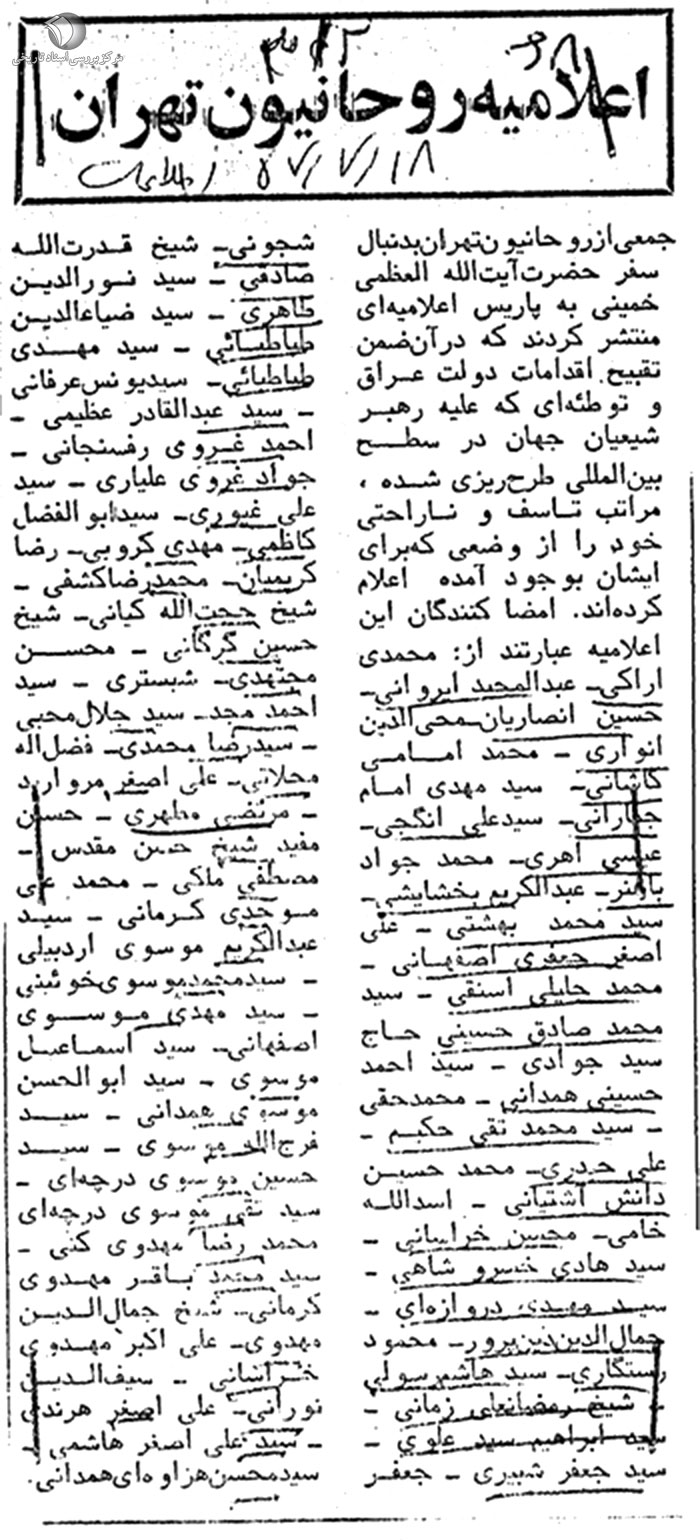 مرکز بررسی اسناد تاریخی
اعلامیه روحانیون تهران
۵۷/۷/۱۸ اطلاعات
جمعی از روحانیون تهران بدنبال
سفر حضرت آیت‌الله العظمی
خمینی به پاریس اعلامیه‌ای
منتشر کردند که در آن ضمن
تقبیح اقدامات دولت عراق
و توطئه‌ای که علیه رهبر
شیعیان جهان در سطح
بین‌المللی طرح‌ریزی شده ،
مراتب تاسف و ناراحتی
خود را از وضعی که برای
ایشان بوجود آمده اعلام
کرده‌اند. امضا کنندگان این
اعلامیه عبارتند از: محمدی
اراکی- عبدالمجید ایروانی-
حسین انصاریان- محی‌الدین
انواری - محمد امامی
کاشانی- سید مهدی امام
جمارانی- سیدعلی انگجی-
عیسی اهری- محمد جواد
باهنر- عبدالکریم بخشایشی-
سید محمد بهشتی - علی
اصغر جعفری اصفهانی -
محمد خلیلی اسنقی - سید
محمد صادق حسینی حاج
سید جوادی - سید احمد
حسینی همدانی - محمدحقی
- سید محمد تقی حکیم -
علی حیدری- محمد حسین
دانش آشتیانی - اسدالله
خامی- محسن خراسانی -
سید هادی خسرو شاهی -
سید مهدی دروازه‌ای -
جمال‌الدین دین‌پرور- محمود
رستگاری- سید هاشم رسولی
- شیخ رمضانعلی زمانی -
سید ابراهیم سید علوی -
سید جعفر شبیری - جعفر
شجونی- شیخ قدرت‌الله
صادقی - سید نورالدین
طاهری - سید ضیاءالدین
طباطبائی - سید مهدی
طباطبائی- سیدیونس عرفانی
- سید عبدالقادر عظیمی -
احمد غروی رفسنجانی -
جواد غروی علیاری - سید
علی غیوری- سید ابوالفضل
کاظمی- مهدی کروبی- رضا
کریمیان- محمدرضا کشفی -
شیخ حجت‌الله کیانی- شیخ
حسین گرگانی - محسن
مجتهدی- شبستری - سید
احمد مجد- سید جلال محبی
- سیدرضا محمدی- فضل‌اله
محلاتی- علی اصغر مروارید
- مرتضی مطهری - حسن
مفید شیخ حسن مقدس -
مصطفی ملکی - محمد علی
موحدی کرمانی - سید
عبدالکریم موسوی اردبیلی
- سیدمحمد موسوی خوئینی
- سید مهدی موسوی
اصفهانی- سید اسماعیل
موسوی - سید ابوالحسن
موسوی همدانی - سید
فرج‌الله موسوی - سید
حسین موسوی درچه‌ای -
سید تقی موسوی درچه‌ای
محمد رضا مهدوی کنی -
سید محمد باقر مهدوی
کرمانی- شیخ جمال‌الدین
مهدوی- علی اکبر مهدوی
خراسانی - سیف‌الدین
نورانی- علی اصغر هرندی
- سید علی اصغر هاشمی -
سید محسن هزاوه‌ای همدانی.